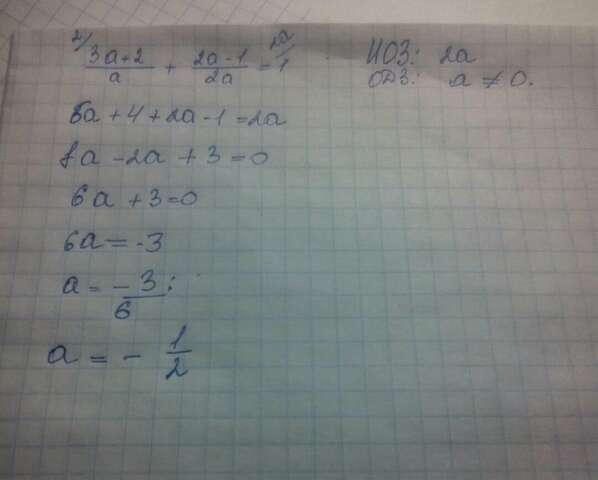 2/ (3a+2)/a + (2a-1)/2a = 2a/ 1
НОЗ: 2a
ОДЗ: a ≠ 0.
6a + 4 + 2a - 1 = 2a
8a - 2a + 3 = 0
6a + 3 = 0
6a = -3
a = -3/6 ;
a = - 1/2